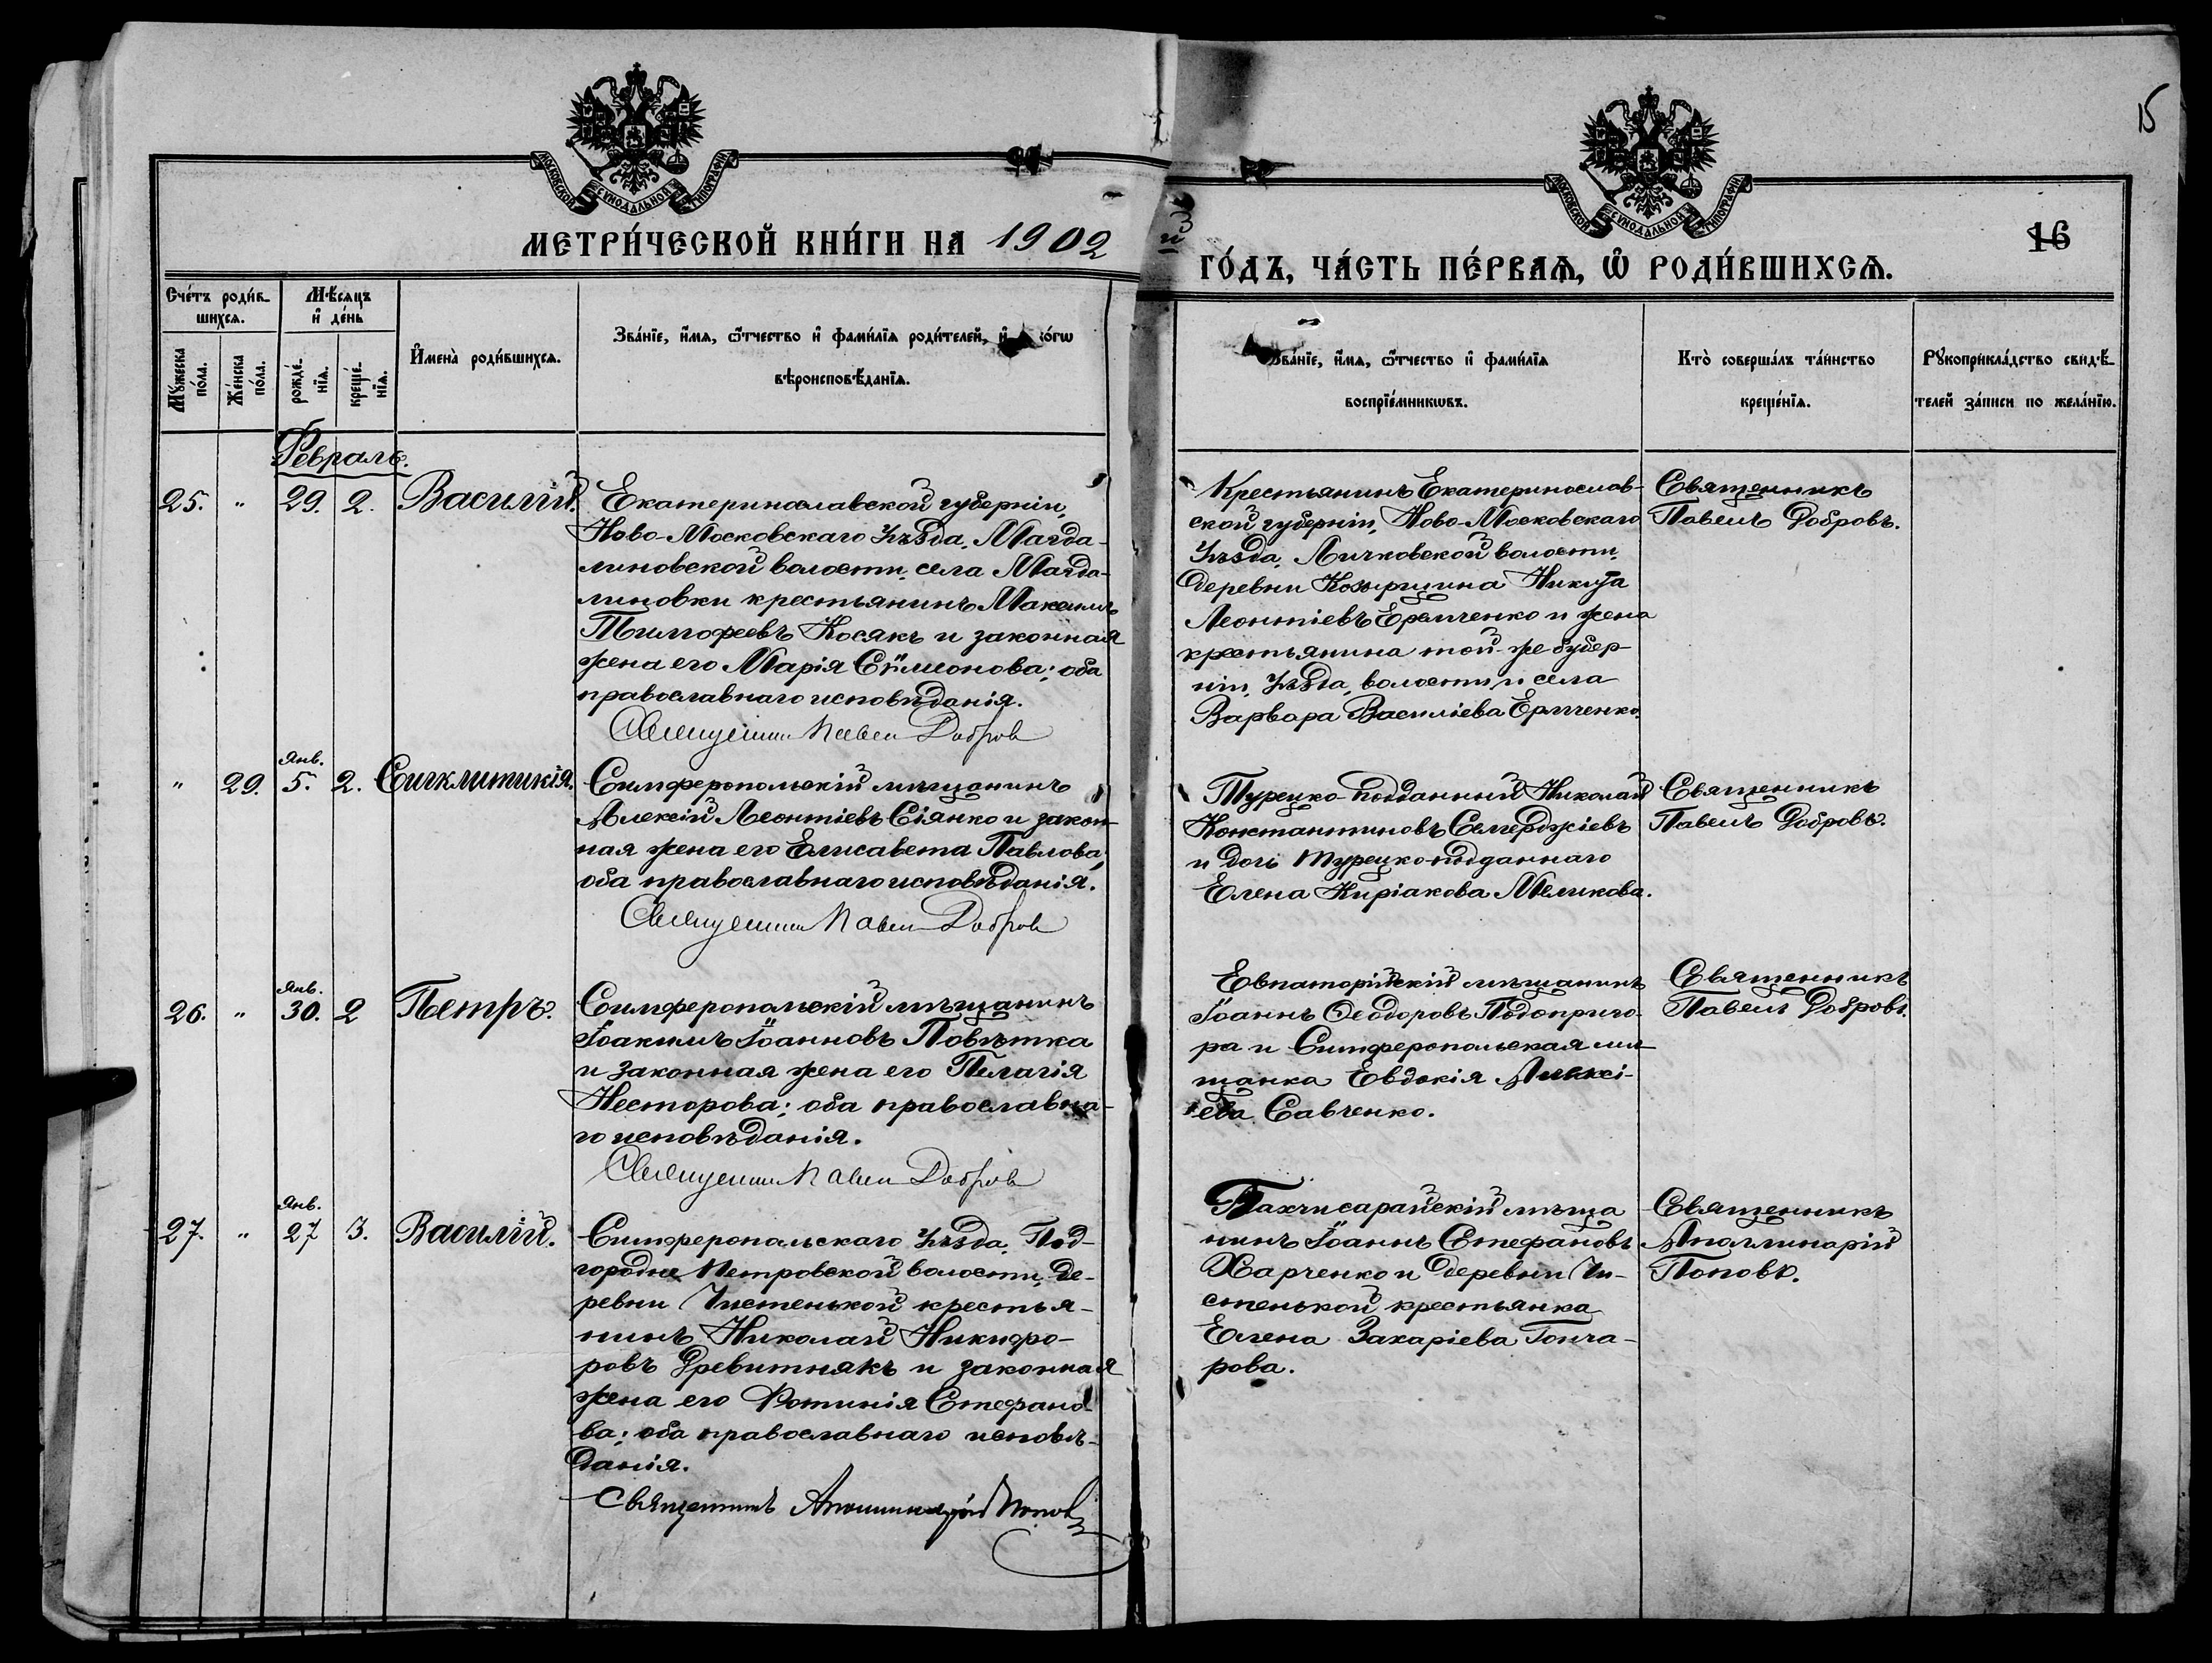 15
МОСКОВСКОЙ СѴНОДАЛЬНОЙ ТИПОГРАФІИ
МОСКОВСКОЙ СѴНОДАЛЬНОЙ ТИПОГРАФІИ
МЕТРИ́ЧЕСКОЙ КНИ́ГИ НА 1902
ГО́ДЪ, ЧА́СТЬ ПЕ́РВАѦ, Ѽ РОДИ́ВШИХСѦ.
16
Сче́тъ роди́в-
шихсѧ.
Мѣ́сѧцъ
и҆ де́нь
Мꙋ́жеска
по́ла.
Же́нска
по́ла.
рожде́-
нїѧ.
креще́-
нїѧ.
И҆мена̀ роди́вшихсѧ.
Зва́нїе, и҆́мѧ, ѻ҆́тчество и҆ фами́лїѧ роди́телей, и҆
вѣроисповѣ́данїѧ.
Зва́нїе, и҆́мѧ, ѻ҆́тчество и҆ фами́лїѧ
воспрїе́мникѡвъ.
Кто̀ соверша́лъ та́инство
креще́нїѧ.
Рꙋкоприкла́дство свидѣ́-
телей за́писи по жела́нїю.
Февраль.
25. " 29. 2. Василій.
Екатеринославской губерніи,
Ново-Московскаго уѣзда, Магда-
линовской волости, села Магда-
линовки крестьянинъ Максимъ
Тимофеевъ Косякъ и законная
жена его Марія Сѵмеонова; оба
православнаго исповѣданія.
Священникъ Павелъ Добровъ
Крестьянинъ Екатеринослав-
ской губерніи, Ново-Московскаго
уѣзда, Личковской волости,
деревни Козырщина Никита
Леонтіевъ Ермченко и жена
крестьянина той-же губер-
ніи, уѣзда, волости и села
Варвара Василіева Ермченко.
Священникъ
Павелъ Добровъ.
Янв.
" 29. 5. 2. Сигклитикія.
Симферопольскій мѣщанинъ
Алексій Леонтіевъ Сіянко и закон-
ная жена его Елисавета Павлова;
оба православнаго исповѣданія.
Священникъ Павелъ Добровъ
Турецко-подданный Николай
Константиновъ Семерджіевъ
и дочь турецко-подданнаго
Елена Киріакова Меликова.
Священникъ
Павелъ Добровъ.
Янв.
26. " 30. 2 Петръ.
Симферопольскій мѣщанинъ
Іоакимъ Іоанновъ Повѣтка
и законная жена его Пелагія
Несторова; оба православна-
го исповѣданія.
Священникъ Павелъ Добровъ
Евпаторійскій мѣщанинъ
Іоаннъ Ѳеодоровъ Подоприго-
ра и Симферопольская мѣ-
щанка Евдокія Алексі-
ева Савченко.
Священникъ
Павелъ Добровъ.
Янв.
27. " 27 3. Василій.
Симферопольскаго уѣзда, Под-
городне Петровской волости, де-
ревни Чистенькой крестья-
нинъ Николай Никифо-
ровъ Древитнякъ и законная
жена его Фотинія Стефано-
ва; оба православнаго исповѣ-
данія.
Священникъ Аполлинарій Поповъ
Бахчисарайскій мѣща
нинъ Іоаннъ Стефановъ
Харченко и деревни Чи-
стенькой крестьянка
Елена Захаріева Гонча-
рова.
Священникъ
Аполлинарій
Поповъ.